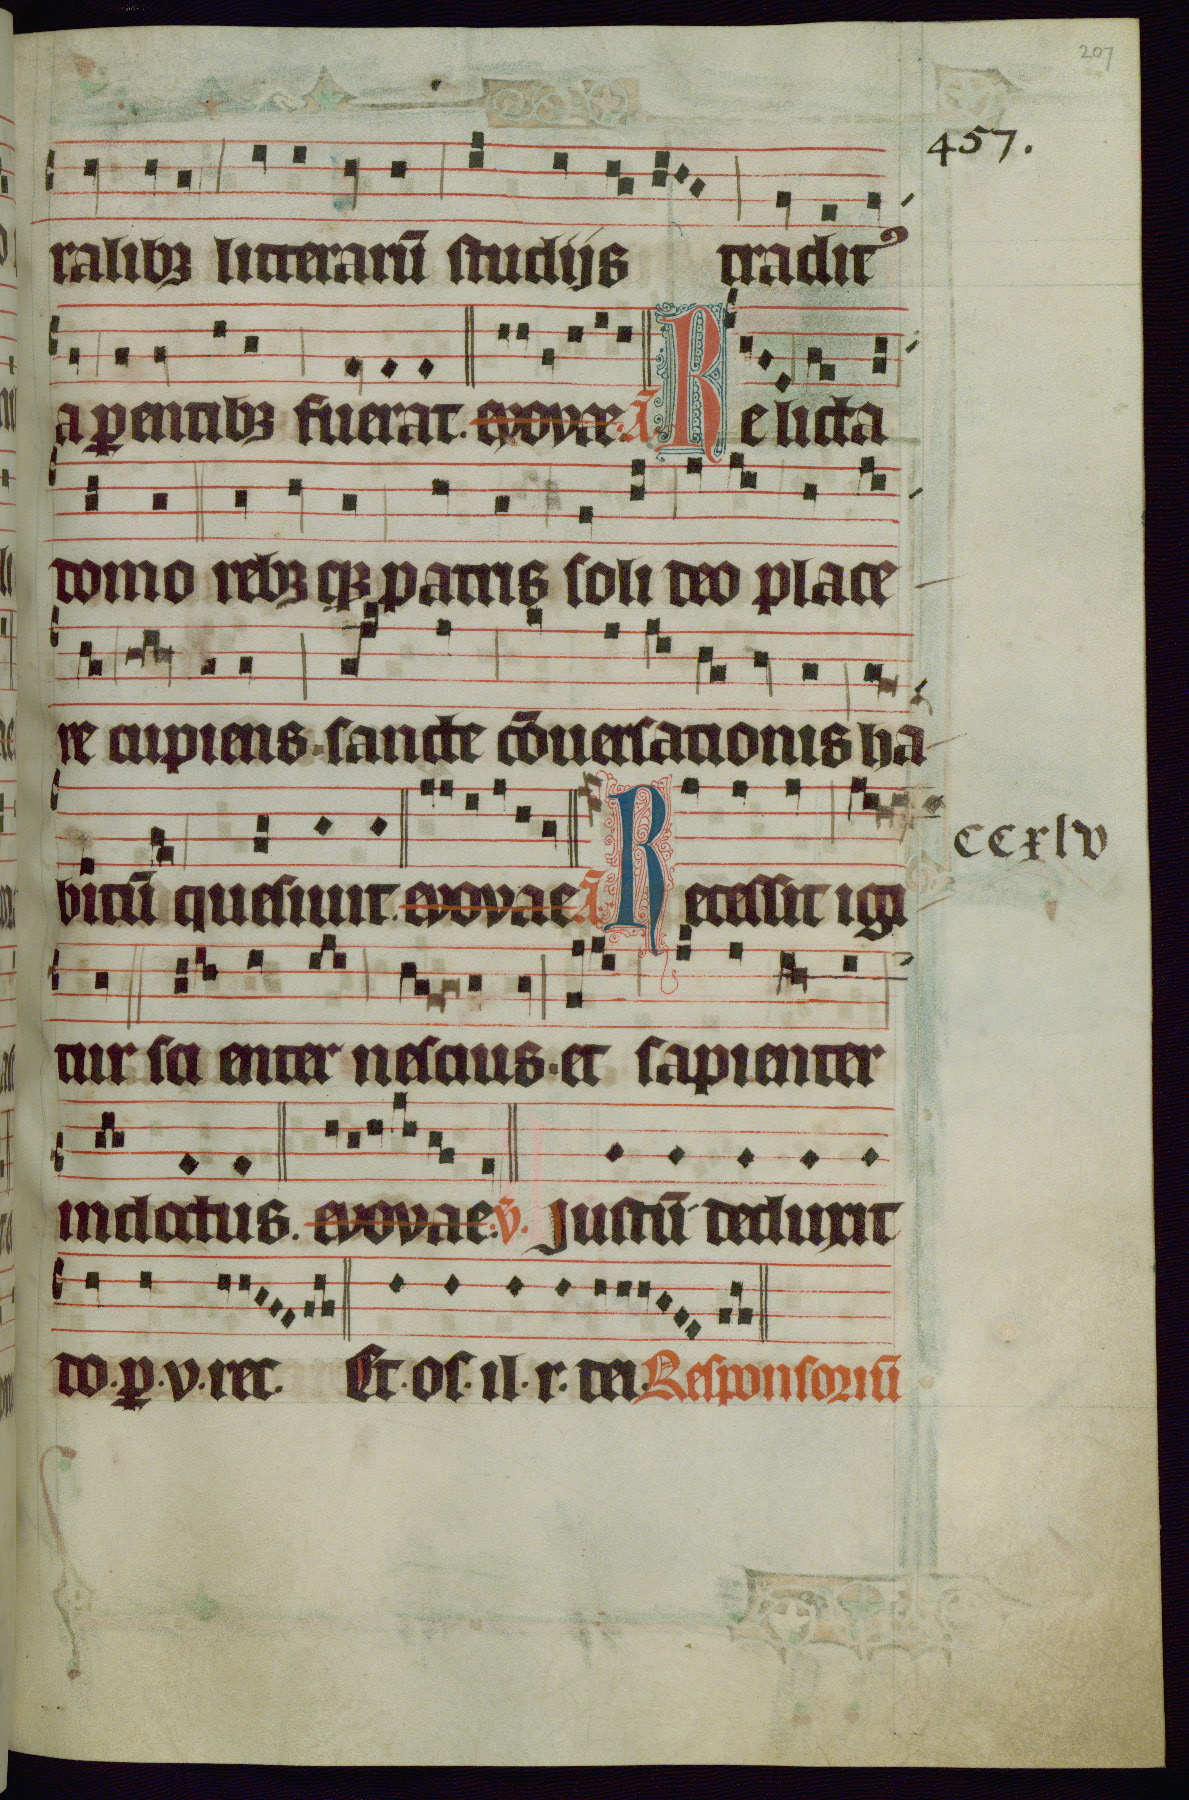 207
457.
ralibꝫ litterarū studijs traditꝰ
a ꝑentibꝫ fuerat. evovae. Ā. Relicta
domo rebꝫ qꝫ patris soli deo place
re cupiens. sancte cōuersationis ha
bitū quesiuit. evovae Ā Recessit igi
CCxlv
tur sci enter nescius. et sapienter
indoctus. evovae. v̄. Justū deduxit
do. ꝑ. v. rec. Et. os. il. r. dei. Responsoriū